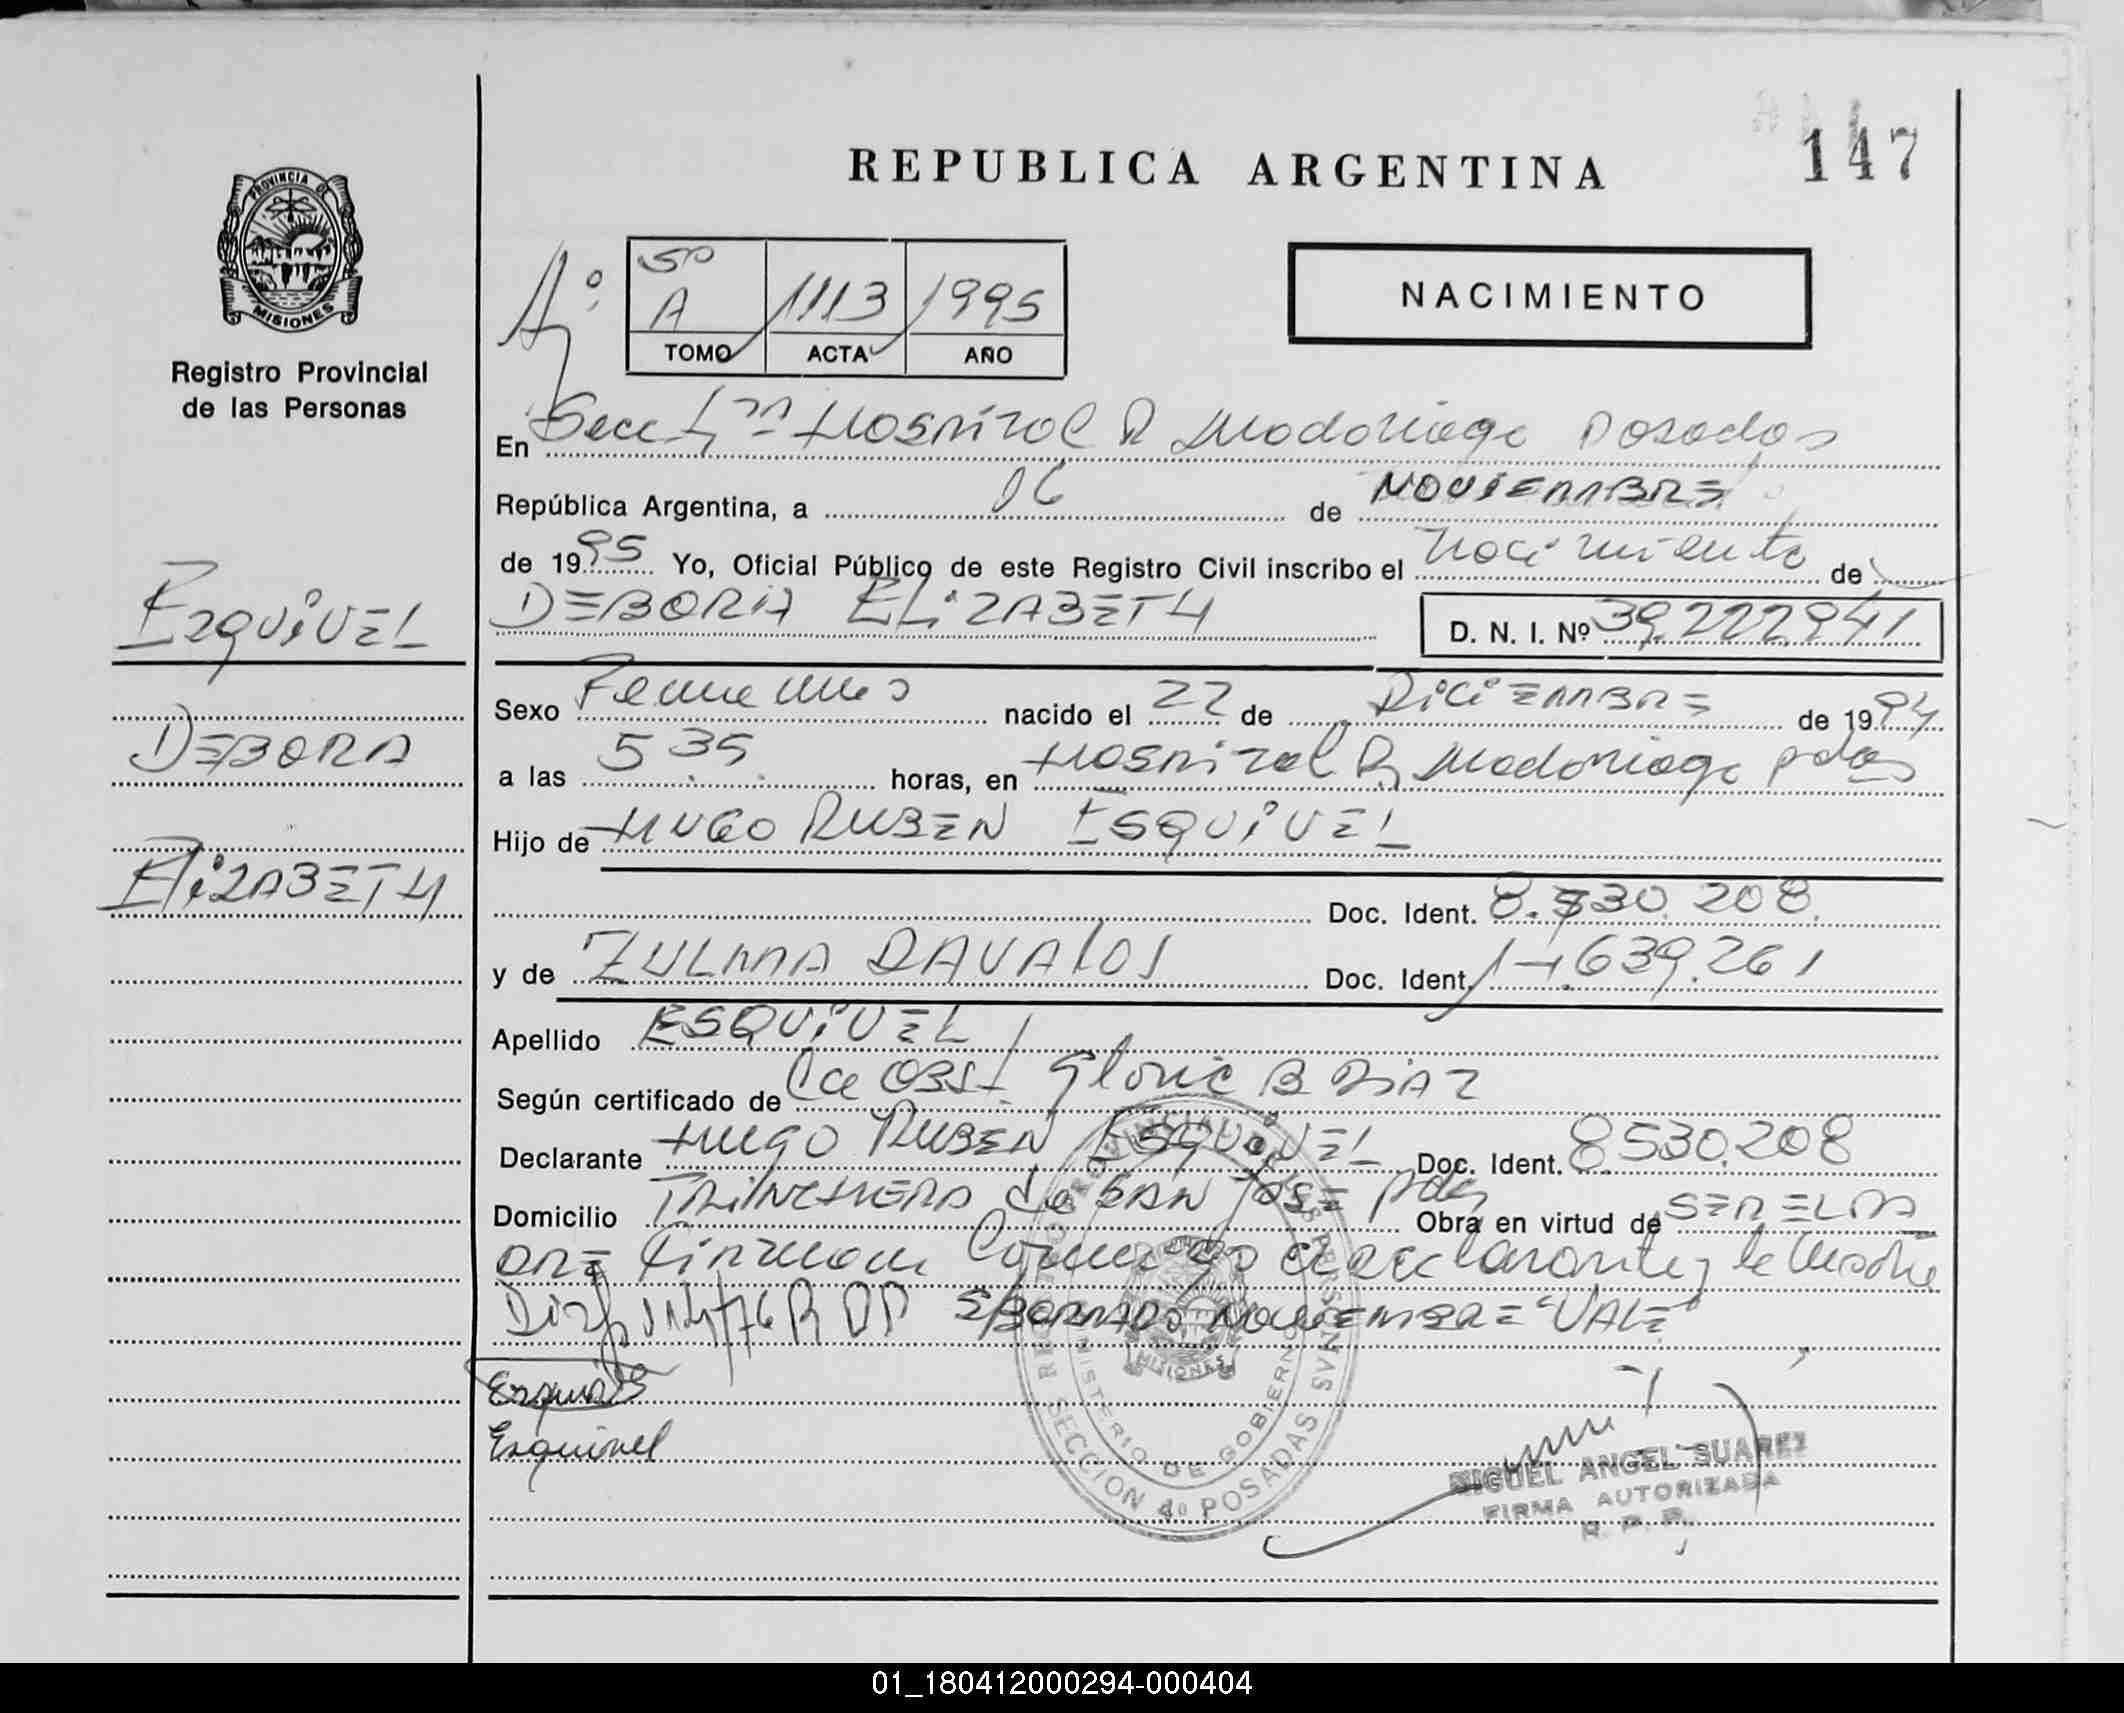 147
REPUBLICA ARGENTINA
PROVINCIA DE
MISIONES
Registro Provincial
de las Personas
5º
A 1113 1995
TOMO ACTA AÑO
NACIMIENTO
En Secc 4ta Hospital R Madariaga Posadas
República Argentina, a 06 de NOVIEMBRE
de 1995 Yo, Oficial Público de este Registro Civil inscribo el Nacimiento de
DEBORA ELIZABETH D. N. I. Nº 39.222.941
ESQUIVEL
DEBORA
ELIZABETH
Sexo Femenino nacido el 22 de DICIEMBRE de 1994
a las 5 35 horas, en Hospital R Madariaga pdas
Hijo de HUGO RUBEN ESQUIVEL
Doc. Ident. 8.530.208
y de ZULMA DAVALOS Doc. Ident. 14.639.261
Apellido ESQUIVEL
Según certificado de La OBST Gloria B DIAZ
Declarante HUGO RUBEN ESQUIVEL Doc. Ident. 8530.208
Domicilio TRINCHERA de SAN JOSE pdas Obra en virtud de SER EL PA
DRE Firman Conmigo el declarante y la Madre
Disp 114/76 R PP S/BORRADO NOVIEMBRE "VALE"
Esquivel
MINISTERIO DE GOBIERNO
MISIONES
SECCION 4º POSADAS
MIGUEL ANGEL SUAREZ
FIRMA AUTORIZADA
R. P. P.
01_180412000294-000404